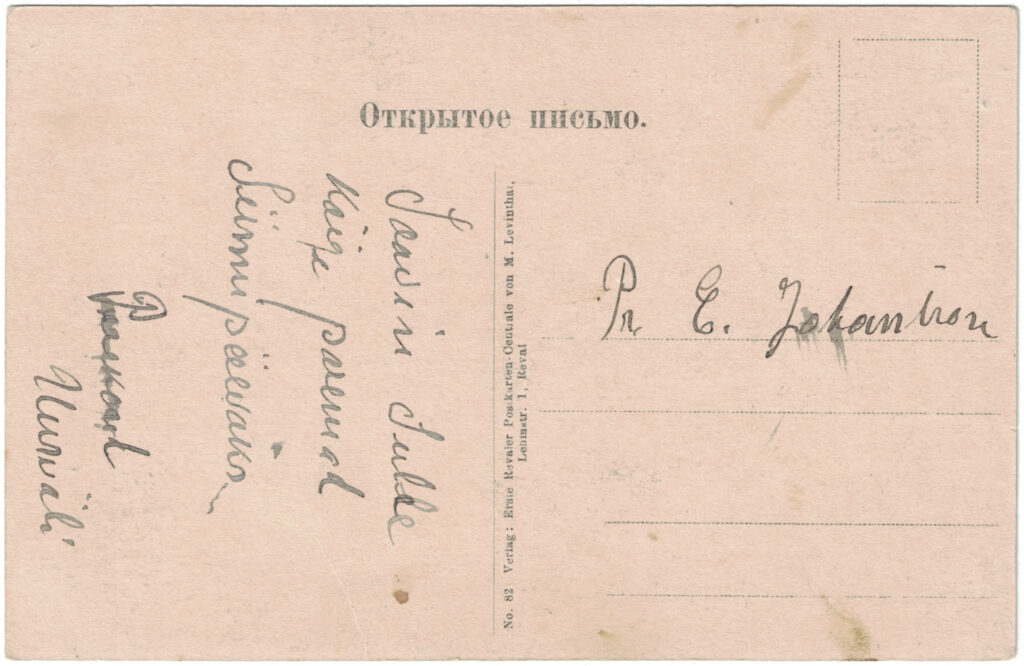 Открытое письмо.
Soovin Sulle
Kõige paremad
Sünnipäevaks
Perekond
No. 82 Verlag: Erste Revaler Postkarten-Centrale von M. Levinthal,
Lehmstr. 1, Reval
Pr. E. Johanson